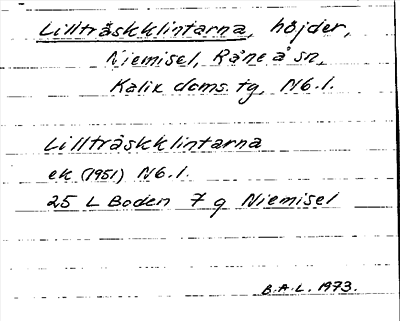 Lillträskklintarna, höjder,
Niemisel, Råneå sn,
Kalix doms. tg, Nb.l.
Lillträskklintarna
ek (1951) Nb.l.
25 L Boden 7 g Niemisel
B.A.L. 1973.